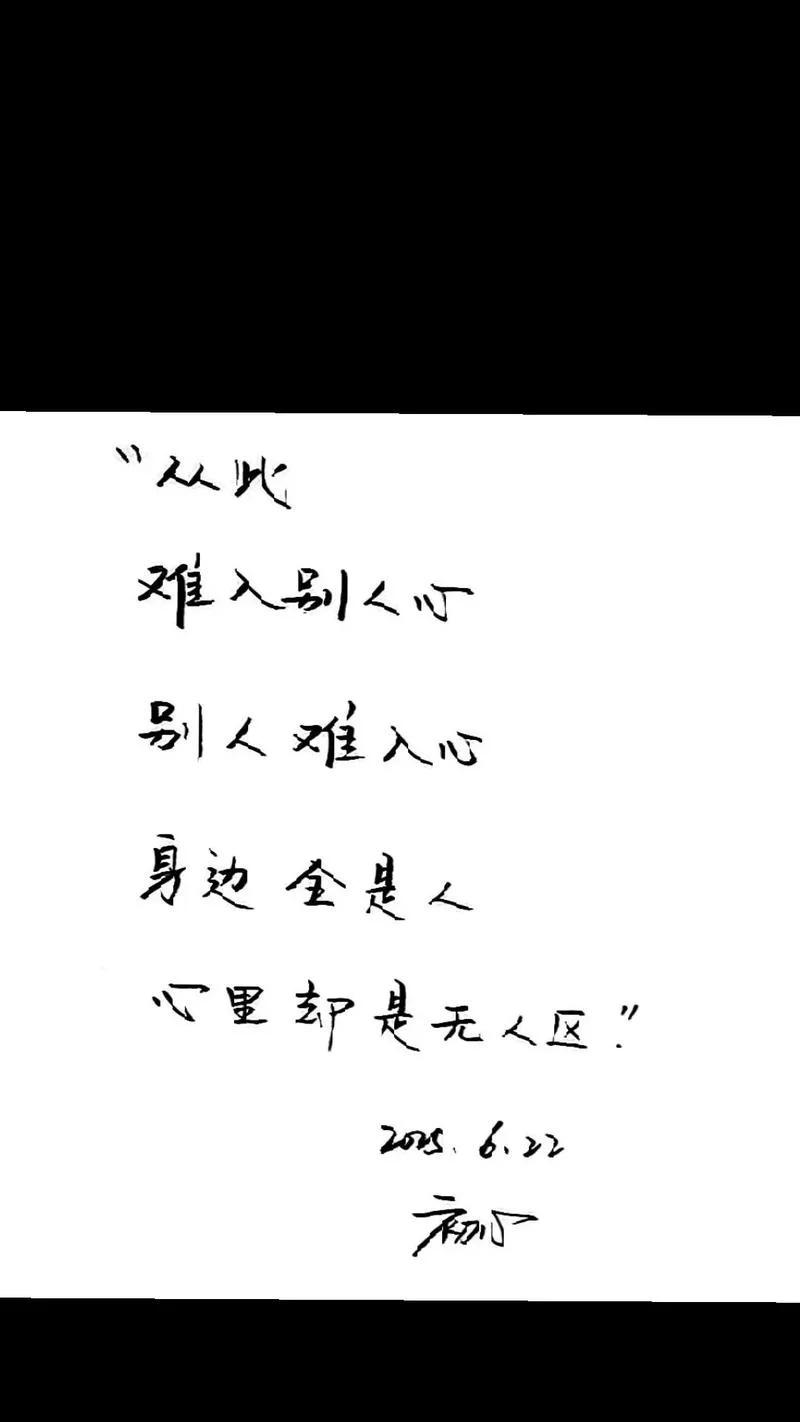 “从此
难入别人心
别人难入心
身边全是人
心里却是无人区.”
2025.6.22
初心